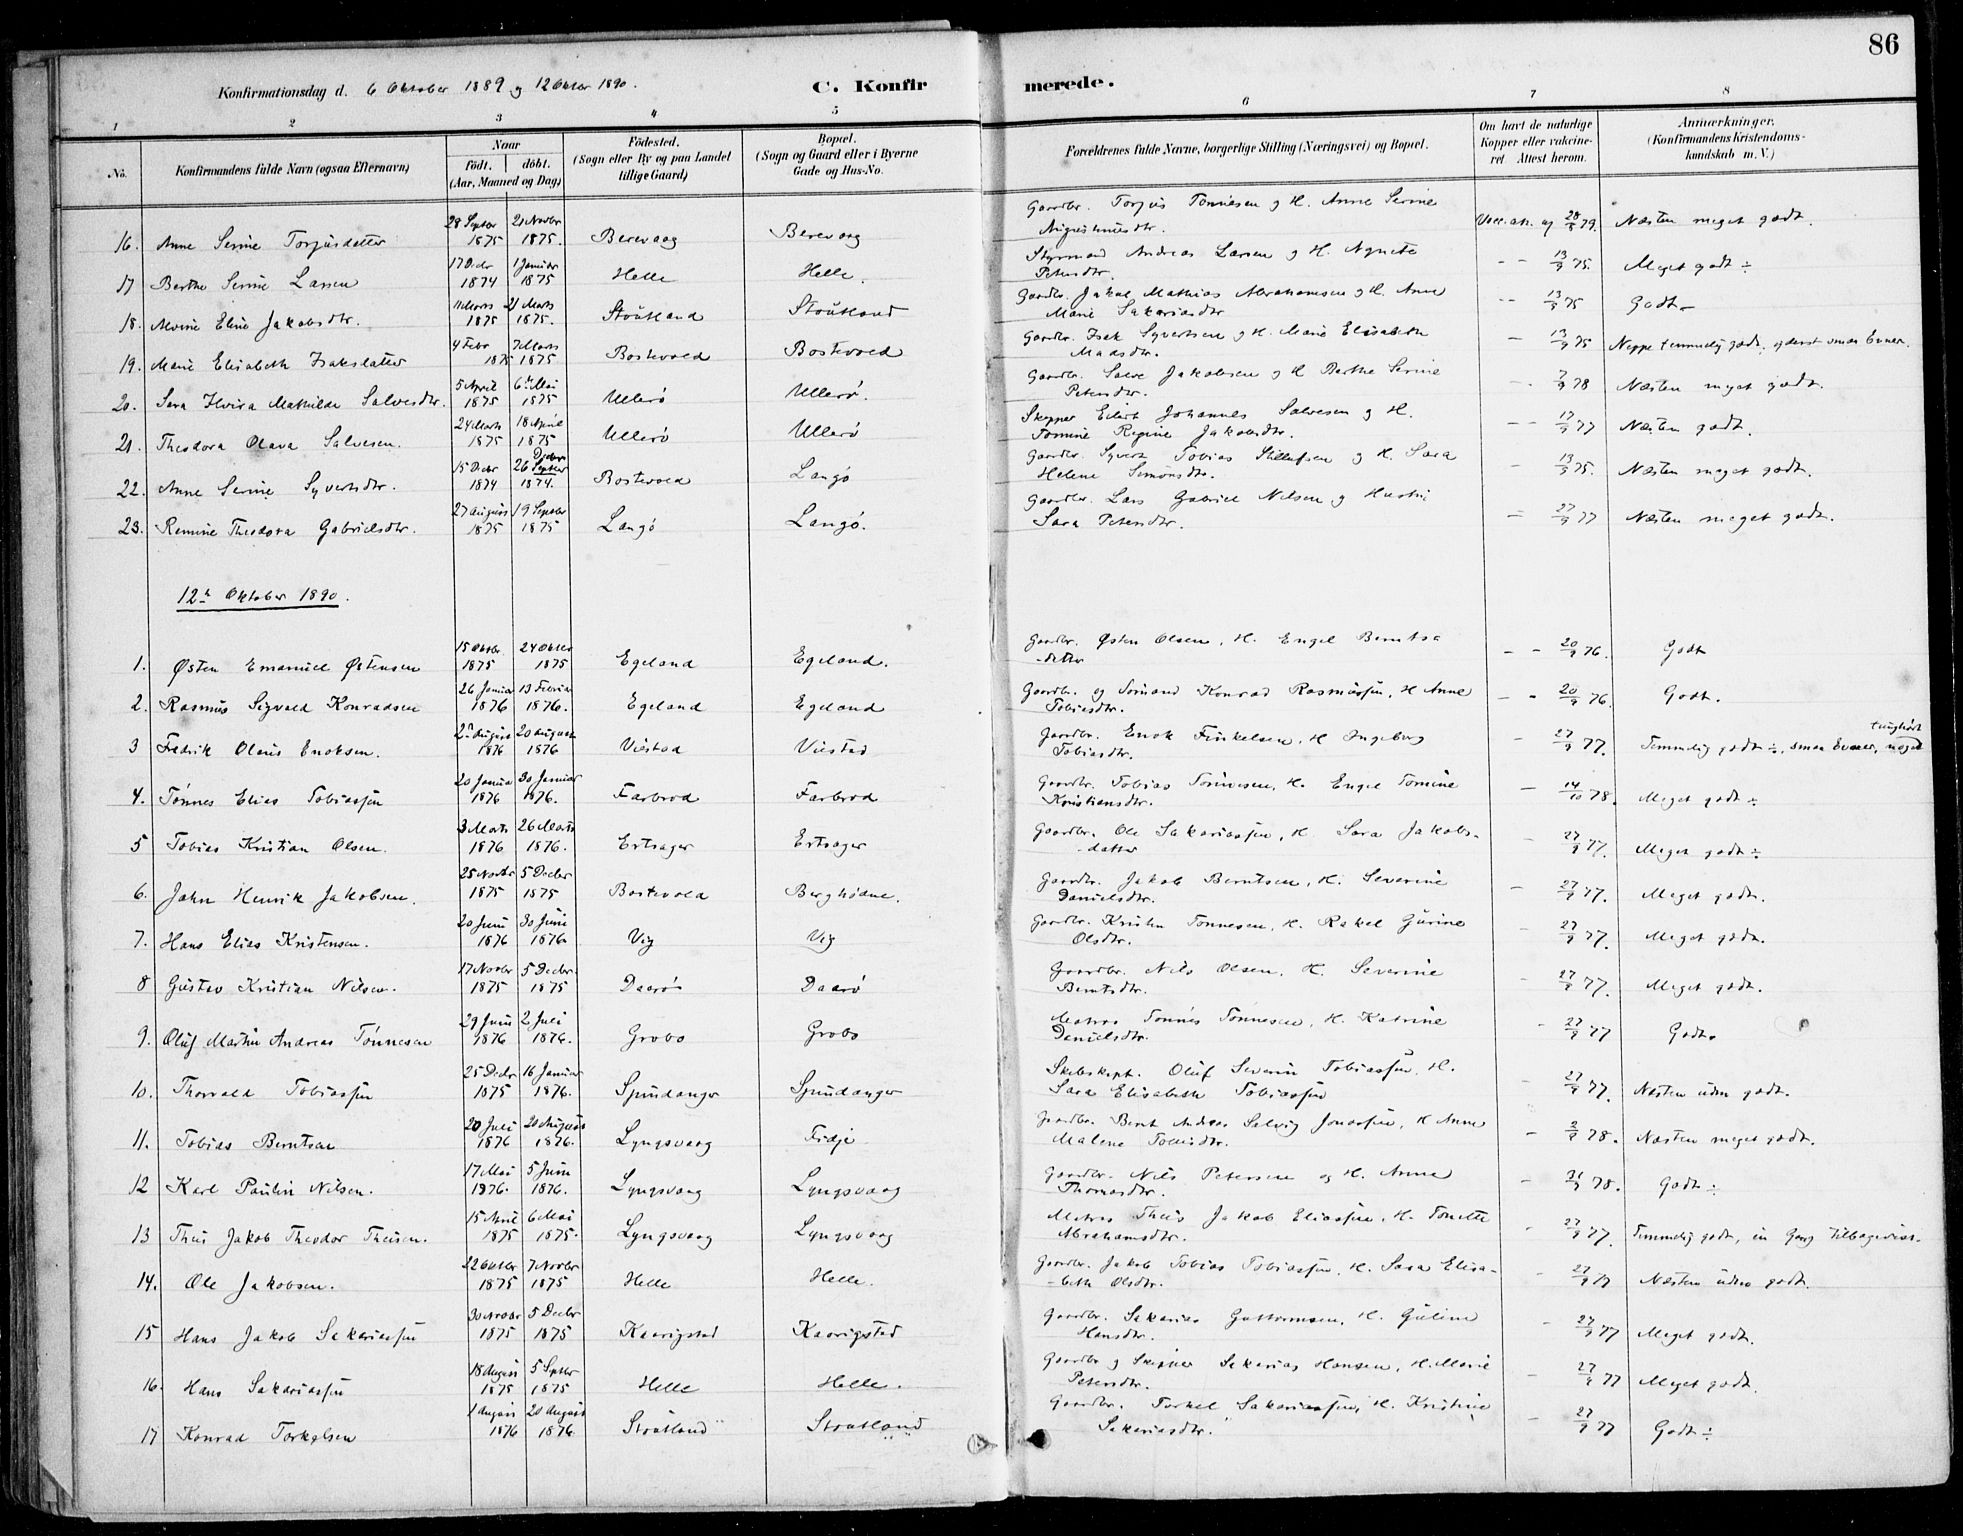 86
Konfirmationsdag d. 6 Oktober 1889 og 12 Oktbr 1890. C. Konfirmerede.
1 2 3 4 5 6 7 8
No. Konfirmandens fulde Navn (ogsaa Efternavn) Naar født. døbt. (Aar, Maaned og Dag) Fødested. (Sogn eller By og paa Landet tillige Gaard) Bopæl. (Sogn og Gaard eller i Byerne Gade og Hus-No. Forældrenes fulde Navne, borgerlige Stilling (Næringsvei) og Bopæl. Om havt de naturlige Kopper eller vaccineret. Attest herom. Anmærkninger. (Konfirmandens Kristendomskundskab m. V.)
16. Anne Serine Torjusdatter 28 Septbr 1875 21 Novbr 1875. Berevaag Berevaag Gaardbr. Torjus Tønnesen og H. Anne Serine Augustinusdtr. Vacc. att. af 28/8 79. Næsten meget godt.
17 Berthe Serine Larsen 17 Decbr 1874 1 Januar 1875 Helle Helle. Styrmand Andreas Larsen og H. Agnete Petersdtr. - - 13/9 75. Meget godt ÷
18. Alvine Eline Jakobsdtr. 11 Marts 1875 21 Marts 1875. Støutland Støutland Gaardbr. Jakob Mathias Abrahamsen og H. Anne Marie Sakariasdtr - - 13/9 75 Godt
19. Marie Elisabeth Isaksdatter 4 Febr 1875 7 Marts 1875 Bostevold Bostevold Gaardbr. Isak Syvertsen og H. Marie Elisabeth Madsdtr. - 13/9 75 Neppe temmelig godt, yderst smaa Evner.
20. Sara Elvira Mathilde Salvesdtr. 5 April 1875 6te Mai 1875 Ullerø Ullerø. Gaardbr. Salve Jakobsen og H Berthe Serine Petersdtr. 78 Næsten meget godt.
21. Theodora Olava Salvesen. 24 Marts 1875 18 April 1875 Ullerø Ullerø Skipper Eilert Johannes Salvesen og H. Tomine Regine Jakobsdtr. - - 77 Næsten godt.
22. Anne Serine Syvertsdtr. 15 Decbr 1874 26 Septbr Decbr 1874. Bostevold Langø Gaardbr. Syvert Tobias Stillufsen og H. Sara Helene Simonsdtr. - 13/9 75. Næsten meget godt.
23. Remine Theodora Gabrielsdtr. 27 August 1875 19 Septbr 1875 Langø Langø. Gaardbr. Lars Gabriel Nilsen og Hustru Sara Petersdtr. 27/9 77 Næsten meget godt.
12te Oktober 1890.
1. Østen Emanuel Østensen 15 Oktbr. 1875 24 Oktbr 1875 Egeland Egeland. Gaardbr. Østen Olsen, H. Engel Berntsdatter - - 20/9 76. Godt
2. Rasmus Sigvald Konradsen 26 Januar 1876 13 Februar 1876. Egeland Egeland Gaardbr. og Sømand Konrad Rasmussen, H Anne Tobiasdtr. - - 20/9 76. Godt.
3 Fredrik Olaus Enoksen. 2den August 1876 20 August 1876 Viestad Viestad Gaardbr. Enok Finkelsen, H Ingeborg Tobiasdtr. - 27/9 77. Temmelig godt ÷, smaa Evner, noget tunghørt
4. Tønnes Elias Tobiassen 20 Januar 1876 30 Januar 1876. Farbrod Farbrod Gaardbr. Tobias Tønnesen, H. Engel Tomine Kristiansdtr. - 14/10 78. Meget godt ÷
5 Tobias Kristian Olsen. 3 Marts 1876 26 Marts 1876. Ertsager Ertsager Gaardbr. Ole Sakariassen, H. Sara Jakobsdatter 27/9 77. Meget godt ÷
6. John Henrik Jakobsen. 25 Novbr 1875 5 Decbr 1875 Bostevold Berghødne. Gaardbr. Jakob Berntsen, H. Severine Danielsdtr. - 27/9 77. Meget godt.
7. Hans Elias Kristensen. 20 Juni 1876 30 Juni 1876. Vig Vig Gaardbr. Kristen Tønnesen, H. Rakel Gurine Olsdtr. - 27/9 77. Meget godt.
8 Gustav Kristian Nilsen. 17 Novbr 1875 5 Decbr. 1875 Daarø Daarø Gaardbr. Nils Olsen, H. Severine Berntsdtr. - 27/9 77. Meget godt.
9. Oluf Martin Andreas Tønnesen 29 Juni 1876 2 Juli 1876. Grobo Grobo Matros Tønnes Tønnesen, H. Katrine Danielsdtr. - 27/9 77 Godt.
10. Thorvald Tobiassen 25 Decbr 1875 16 Januar 1876. Spindanger Spindanger Skibskapt. Oluf Severin Tobiassen, H. Sara Elisabeth Tobiassen - 27/9 77. Næsten uden godt.
11. Tobias Berntsen 20 Juli 1876 20 August 1876. Lyngsvaag Fidje Gaardbr. Bernt Andreas Salvig Jonassen, H Anne Malene Tobiasdtr. - 78. Næsten meget godt.
12 Karl Paulin Nilsen. 17 Mai 1876. 5 Juni 1876. Lyngsvaag Lyngsvaag Gaardbr. Nils Petersen og H. Anna Thomasdtr. - 78. Godt ÷
13 Theis Jakob Theodor Theisen. 15 April 1875 6 Mai 1875. Lyngsvaag Lyngsvaag Matros Theis Jakob Eliassen, H. Tonette Abrahamsdtr. - 27/9 77. Temmelig godt, en Gang tilbagevist.
14. Ole Jakobsen. 22 Oktbr 1875 7 Novbr 1875 Helle Helle. Gaardbr. Jakob Tobias Tobiassen, H. Sara Elisabeth Olsdtr. - 27/9 77 Næsten uden godt.
15 Hans Jakob Sakariassen 30 Novbr 1875 5 Decbr 1875 Kaarigstad Kaarigstad Gaardbr. Sakarias Guttormsen, H. Guline Hansdtr. - 27/9 77 Meget godt.
16. Hans Sakariassen 18 August 1875 5 Septbr 1875 Helle Helle. Gaardbr og Skipper Sakarias Hansen, H. Marie Petersdtr. - 27/9 77 Meget godt.
17 Konrad Torkelsen 1 August 1876 20 August 1876 Støutland Støutland Gaardbr. Torkel Sakariassen, H. Kristine Sakariasdtr. - 27/9 77 Godt ÷